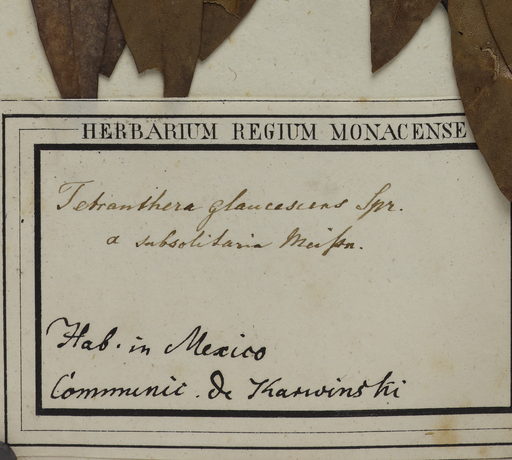 HERBARIUM REGIUM MONACENSE
Tetranthera glaucescens Spr.
α subsolitaria Meißn.
Hab. in Mexico
Communic. de Karwinski